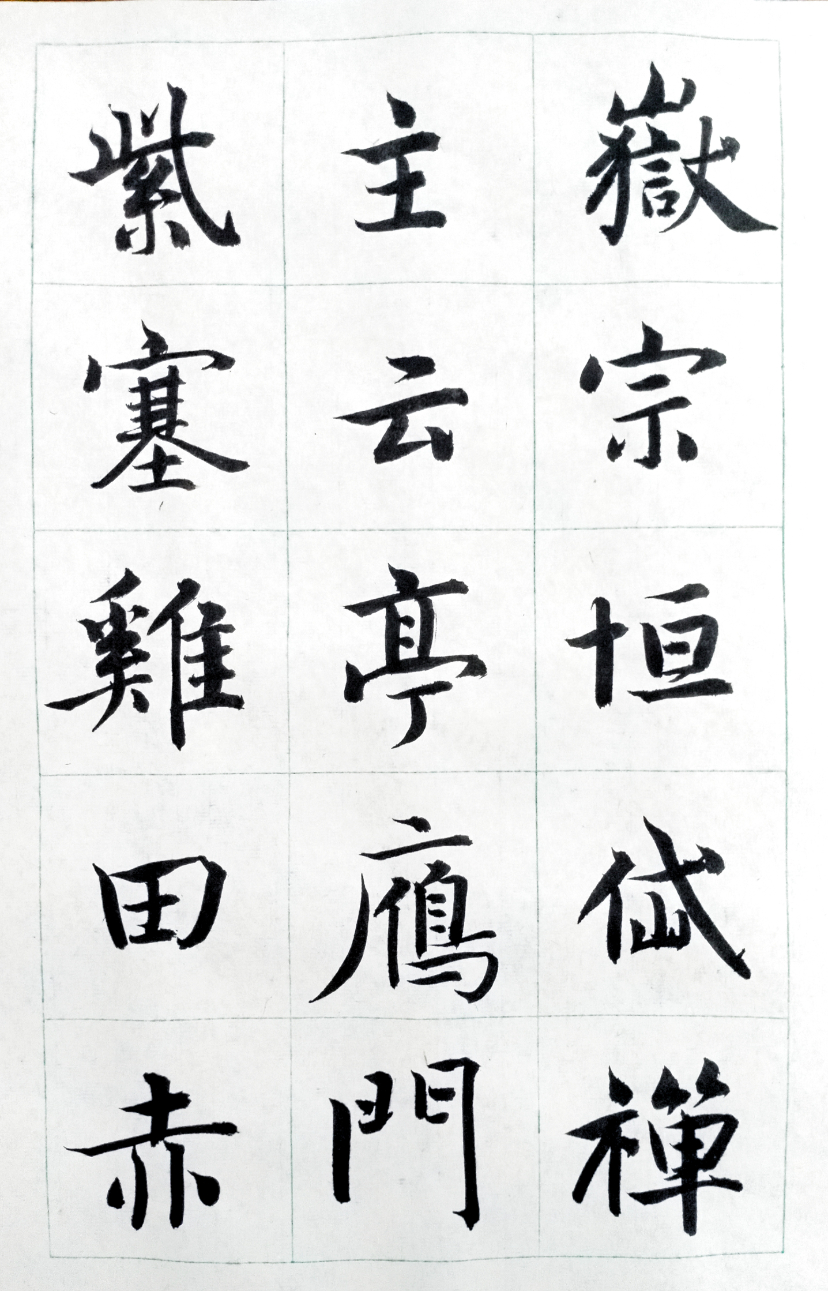 嶽宗恒岱禪
主云亭鴈門
紫塞雞田赤